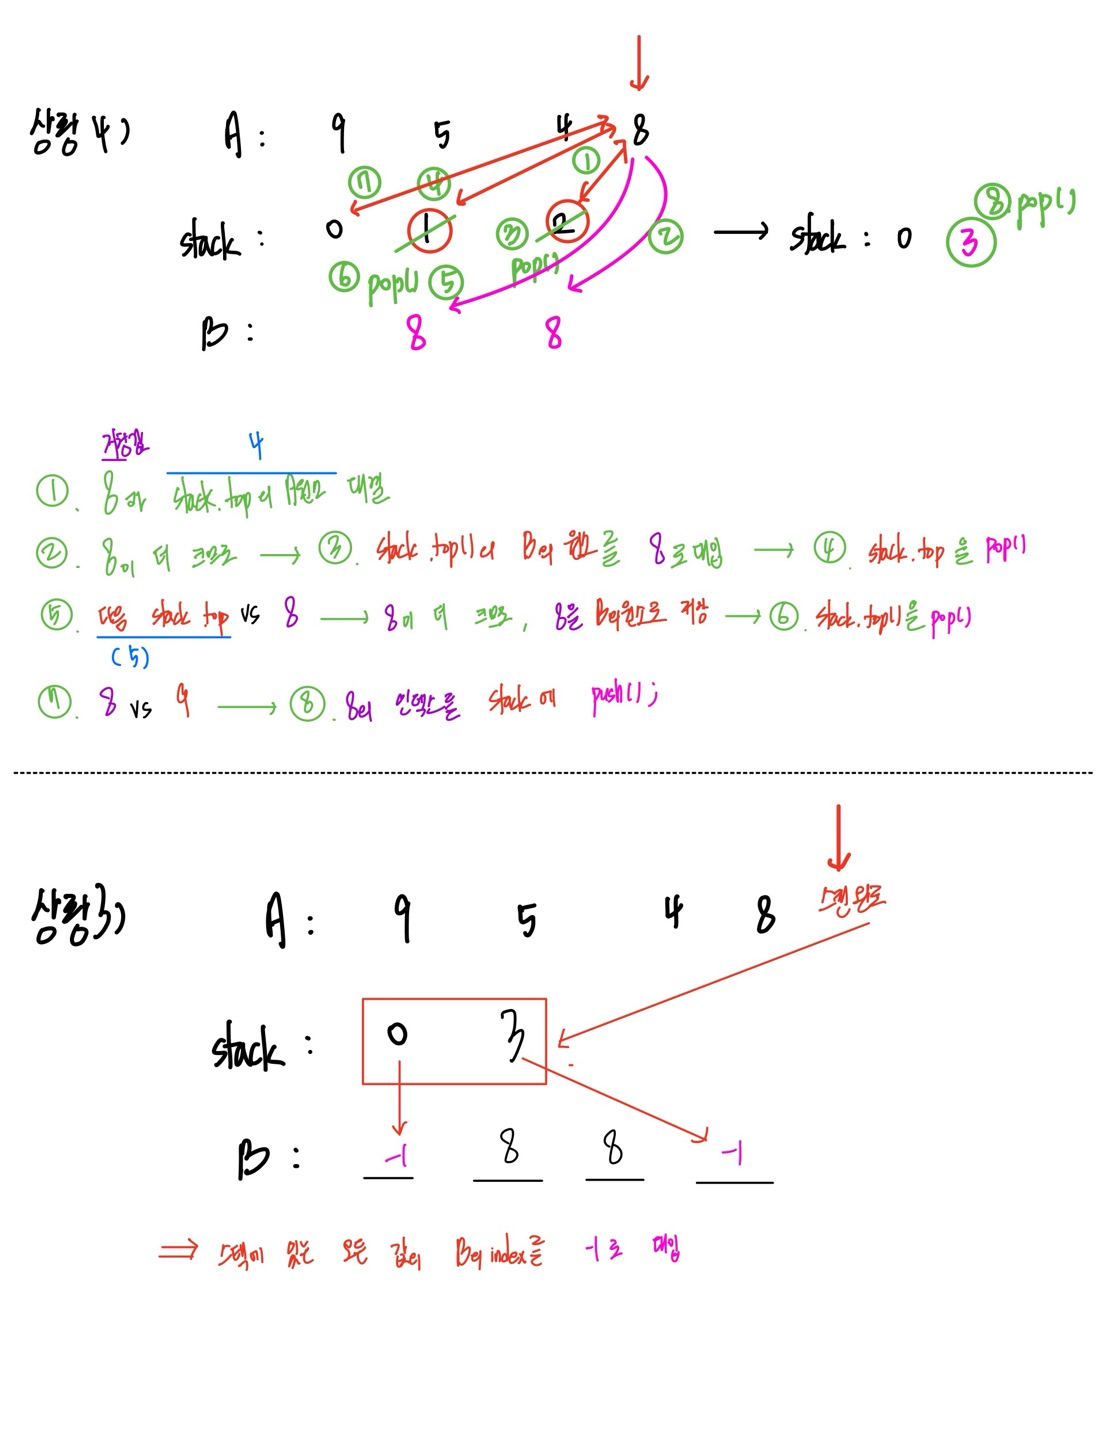 상황 4) A : 9 5 4 8
⑦ ④ ①
stack : 0 1 ③ 2 ② → stack : 0 3 ⑧ pop()
⑥ pop() ⑤ pop()
B : 8 8
4
①. 8과 stack.top의 A원소 대결
②. 8이 더 크므로 → ③. stack.top()의 B의 원소를 8로 대입 → ④. stack.top을 pop()
⑤. 다음 stack top vs 8 → 8이 더 크므로, 8을 B의원소로 저장 → ⑥. stack.top()을 pop()
(5)
⑦. 8 vs 9 → ⑧. 8의 인덱스를 stack에 push();
상황3) A : 9 5 4 8 스캔 완료
stack : 0 3
B : -1 8 8 -1
⇒ 스택에 있는 모든 값의 B의 index를 -1로 대입